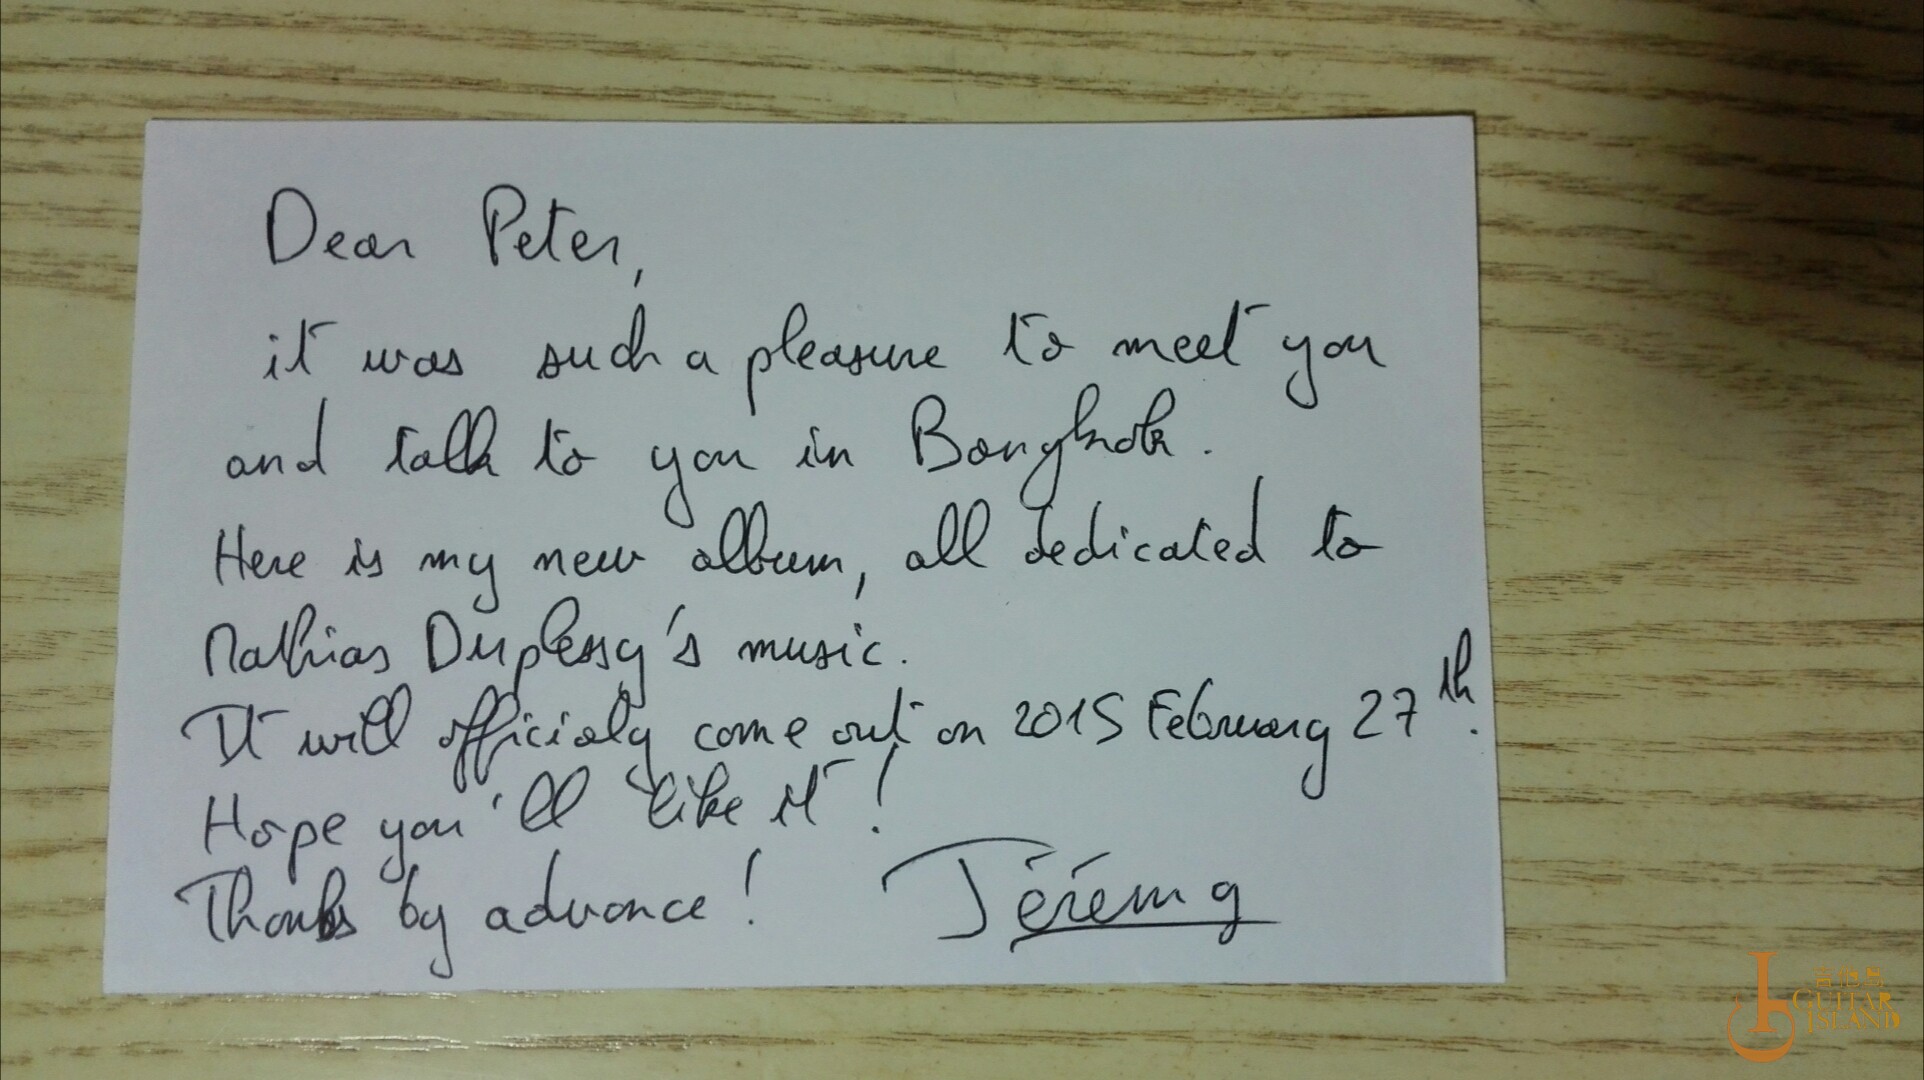 Dear Peter,
it was such a pleasure to meet you
and talk to you in Bangkok.
Here is my new album, all dedicated to
Mathias Duplessy's music.
It will officialy come out on 2015 February 27th.
Hope you'll like it!
Thanks by advance! Jérémy
吉他島
GUITAR
ISLAND